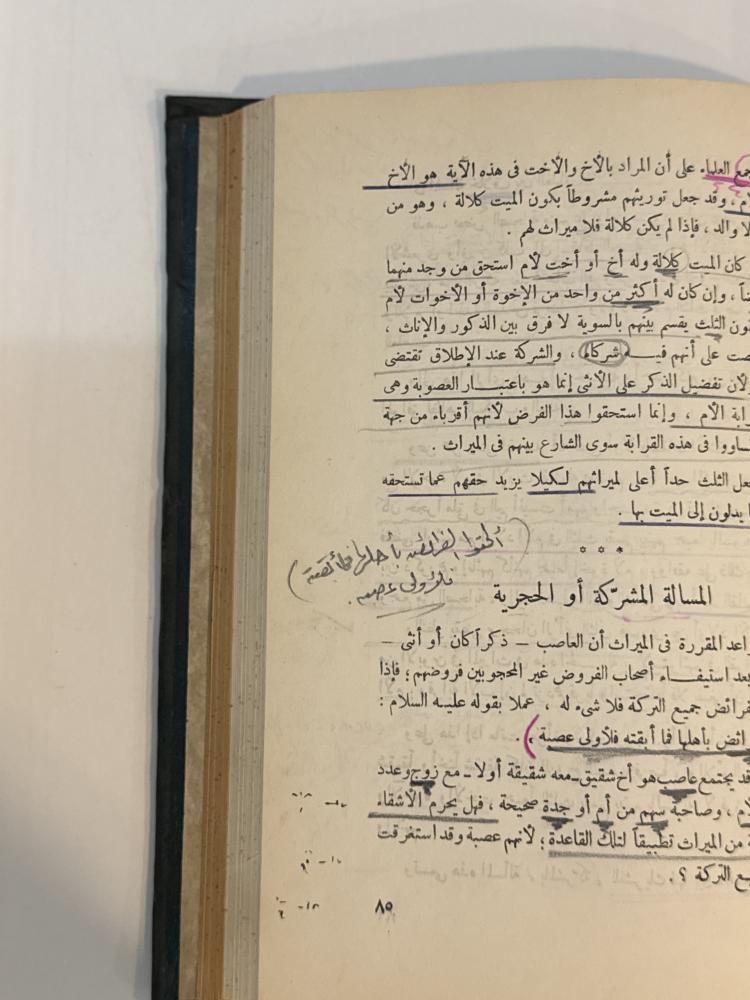 جمع العلماء على أن المراد بالأخ والأخت فى هذه الآية هو الأخ
وقد جعل توريثهم مشروطاً بكون الميت كلالة ، وهو من
لا والد ، فإذا لم يكن كلالة فلا ميراث لهم .
كان الميت كلالة وله أخ أو أخت لأم استحق من وجد منهما
، وإن كان له أكثر من واحد من الإخوة أو الأخوات لأم
الثلث يقسم بينهم بالسوية لا فرق بين الذكور والإناث ،
على أنهم فيـه شركاء ، والشركة عند الإطلاق تقتضى
لأن تفضيل الذكر على الأنثى إنما هو باعتبـار العصوبة وهى
الأم ، وإنما استحقوا هذا الفرض لأنهم أقرباء من جهة
ساووا فى هذه القرابة سوى الشارع بينهم فى الميراث .
جعل الثلث حداً أعلى لميراثهم لكيلا يزيد حقهم عما تستحقه
يدلون إلى الميت بها .
* * *
( ألحقوا الفرائض بأهلها فما أبقته
فلأولى عصبة . )
المسالة المشرّكة أو الحجرية
المقررة فى الميراث أن العاصب – ذكراً كان أو أنثى –
بعد استيفـاء أصحاب الفروض غير المحجوبين فروضهم ؛ فإذا
جميع التركة فلا شىء له ، عملا بقوله عليـه السلام :
بأهلها فما أبقته فلأولى عصبة ، .
قد يجتمع عاصب هو أخ شقيق – معه شقيقة أولا – مع زوج وعدد
، وصاحبة سهم من أم أو جدة صحيحة ، فهل يحرم الأشقاء
من الميراث تطبيقاً لتلك القاعدة ؛ لأنهم عصبة وقد استغرقت
التركة ؟ .
٨٥